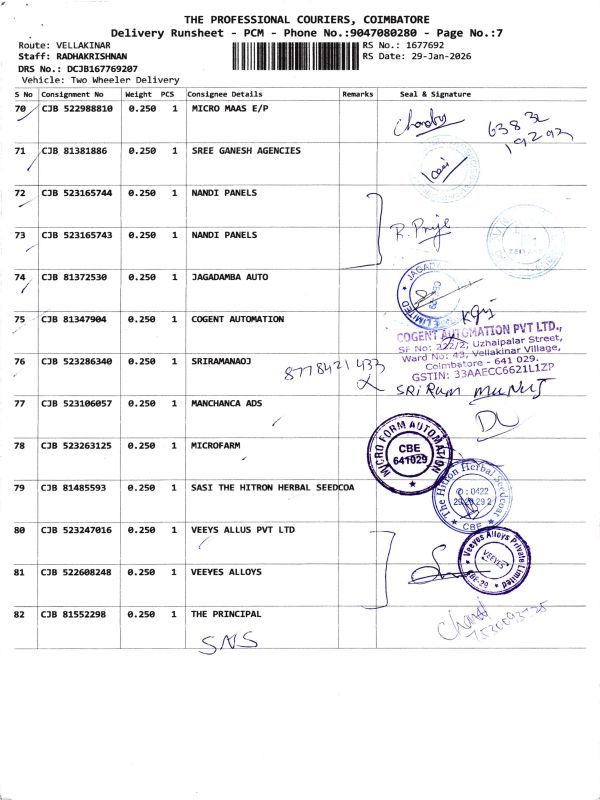 THE PROFESSIONAL COURIERS, COIMBATORE
Delivery Runsheet - PCM - Phone No.:9047080280 - Page No.:7
Route: VELLAKINAR RS No.: 1677692
Staff: RADHAKRISHNAN RS Date: 29-Jan-2026
DRS No.: DCJB167769207
Vehicle: Two Wheeler Delivery
S No Consignment No Weight PCS Consignee Details Remarks Seal & Signature
70 CJB 522988810 0.250 1 MICRO MAAS E/P
63832
19292
71 CJB 81381886 0.250 1 SREE GANESH AGENCIES
72 CJB 523165744 0.250 1 NANDI PANELS
73 CJB 523165743 0.250 1 NANDI PANELS
74 CJB 81372530 0.250 1 JAGADAMBA AUTO
75 CJB 81347904 0.250 1 COGENT AUTOMATION
COGENT AUTOMATION PVT LTD.,
SF No: 222/2, Uzhaipalar Street,
Ward No: 43, Vellakinar Village,
Coimbatore - 641 029.
GSTIN: 33AAECC6621L1ZP
76 CJB 523286340 0.250 1 SRIRAMANAOJ
8778421433
SRiRam
77 CJB 523106057 0.250 1 MANCHANCA ADS
78 CJB 523263125 0.250 1 MICROFARM
MICRO FORM AUTOMATION
CBE
641029
79 CJB 81485593 0.250 1 SASI THE HITRON HERBAL SEEDCOA
The Hitron Herbal Seedcoat
CBE
80 CJB 523247016 0.250 1 VEEYS ALLUS PVT LTD
81 CJB 522608248 0.250 1 VEEYES ALLOYS
Veeyes Alloys Private Limited
VEEYES
CBE-29
82 CJB 81552298 0.250 1 THE PRINCIPAL
SNS